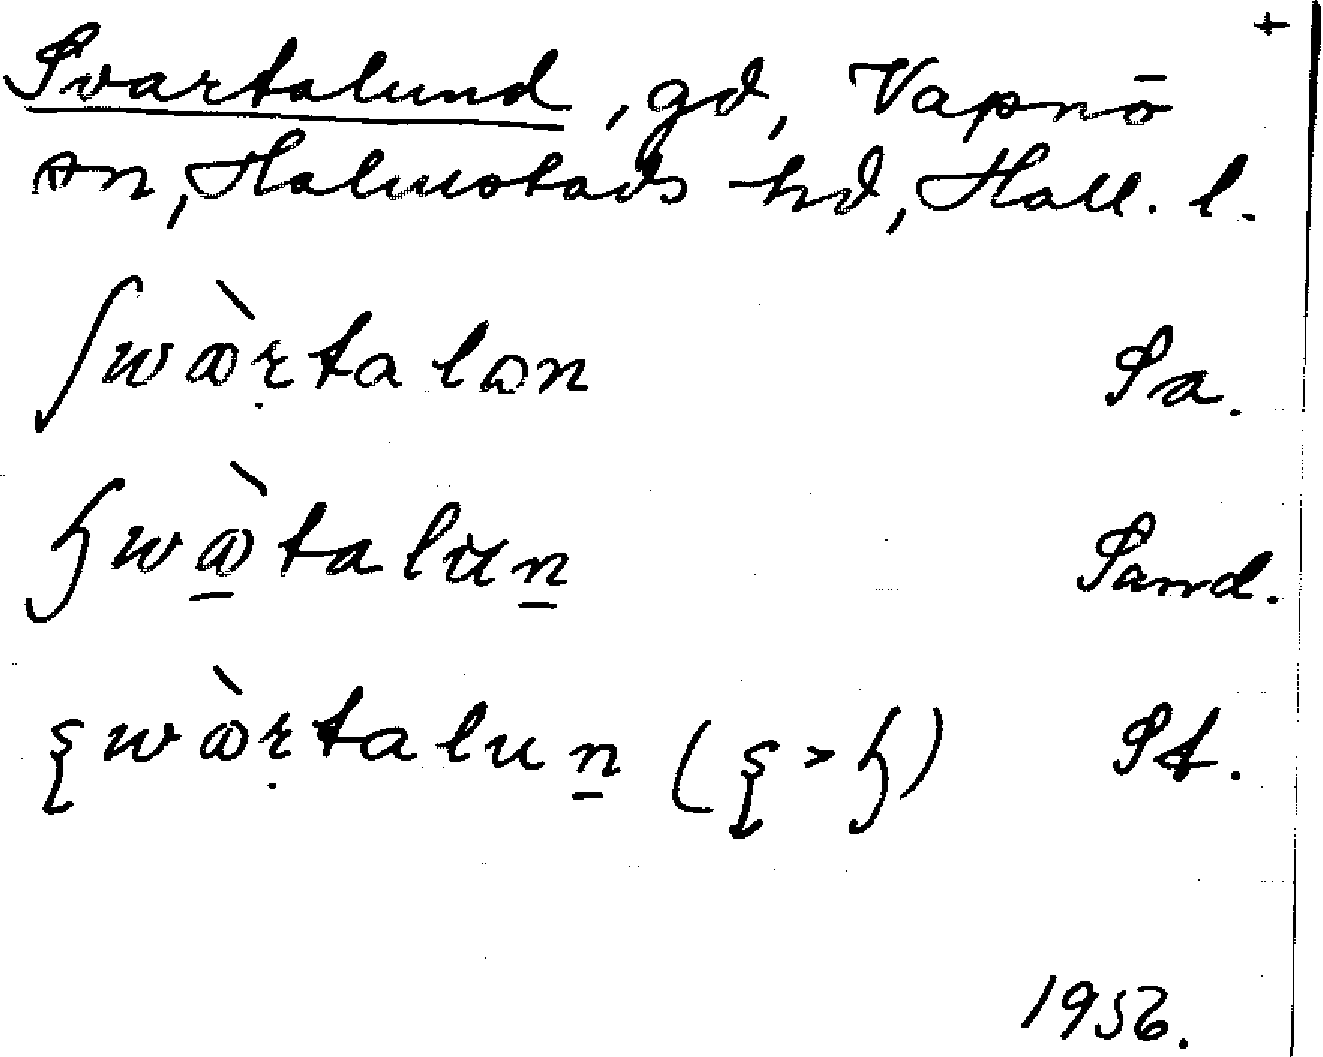 +
Svartalund, gd, Vapnö
sn, Halmstads hd, Hall. l.
ʃwɑ̀ṛtalɷn Sa.
ɧwɑ̱̀talu̇n̲ Sand.
ʂwɑ̀ṛtalun̲ (ʂ>ɧ) St.
1956.